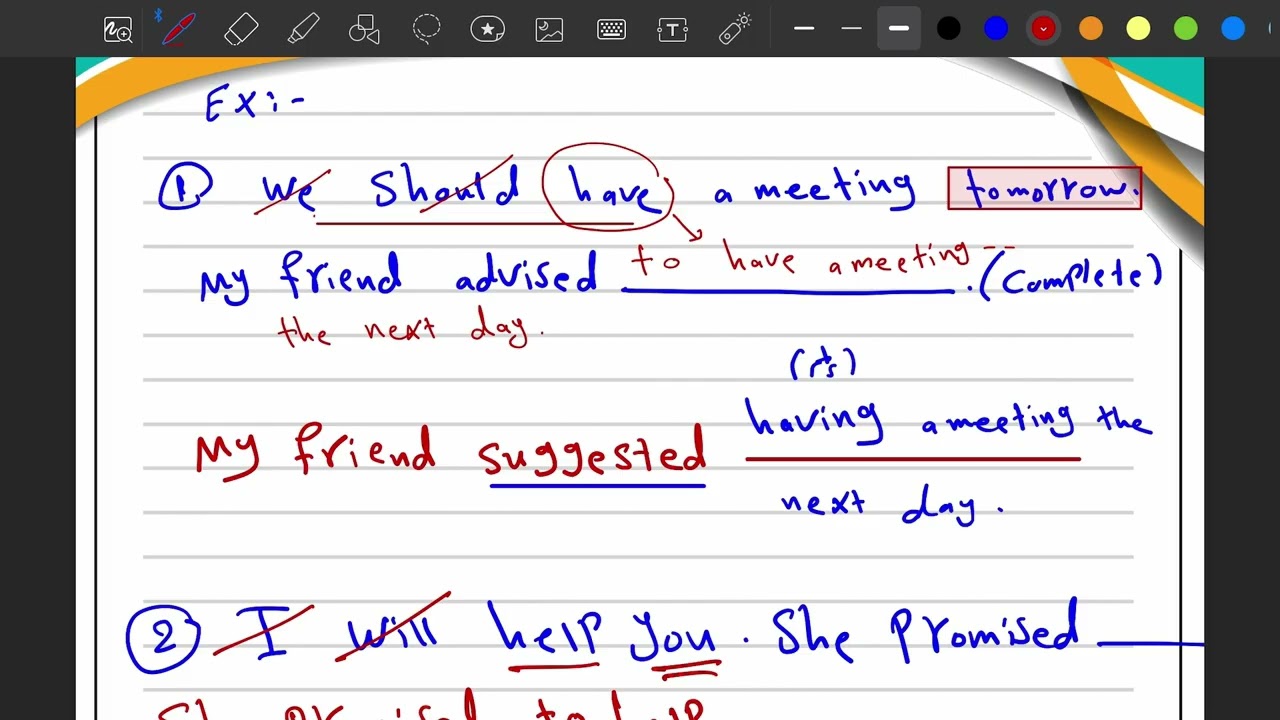 Ex:-
① We should have a meeting tomorrow.
My friend advised to have a meeting -- . (Complete)
the next day.
My friend suggested having a meeting the
next day.
② I will help you. She Promised